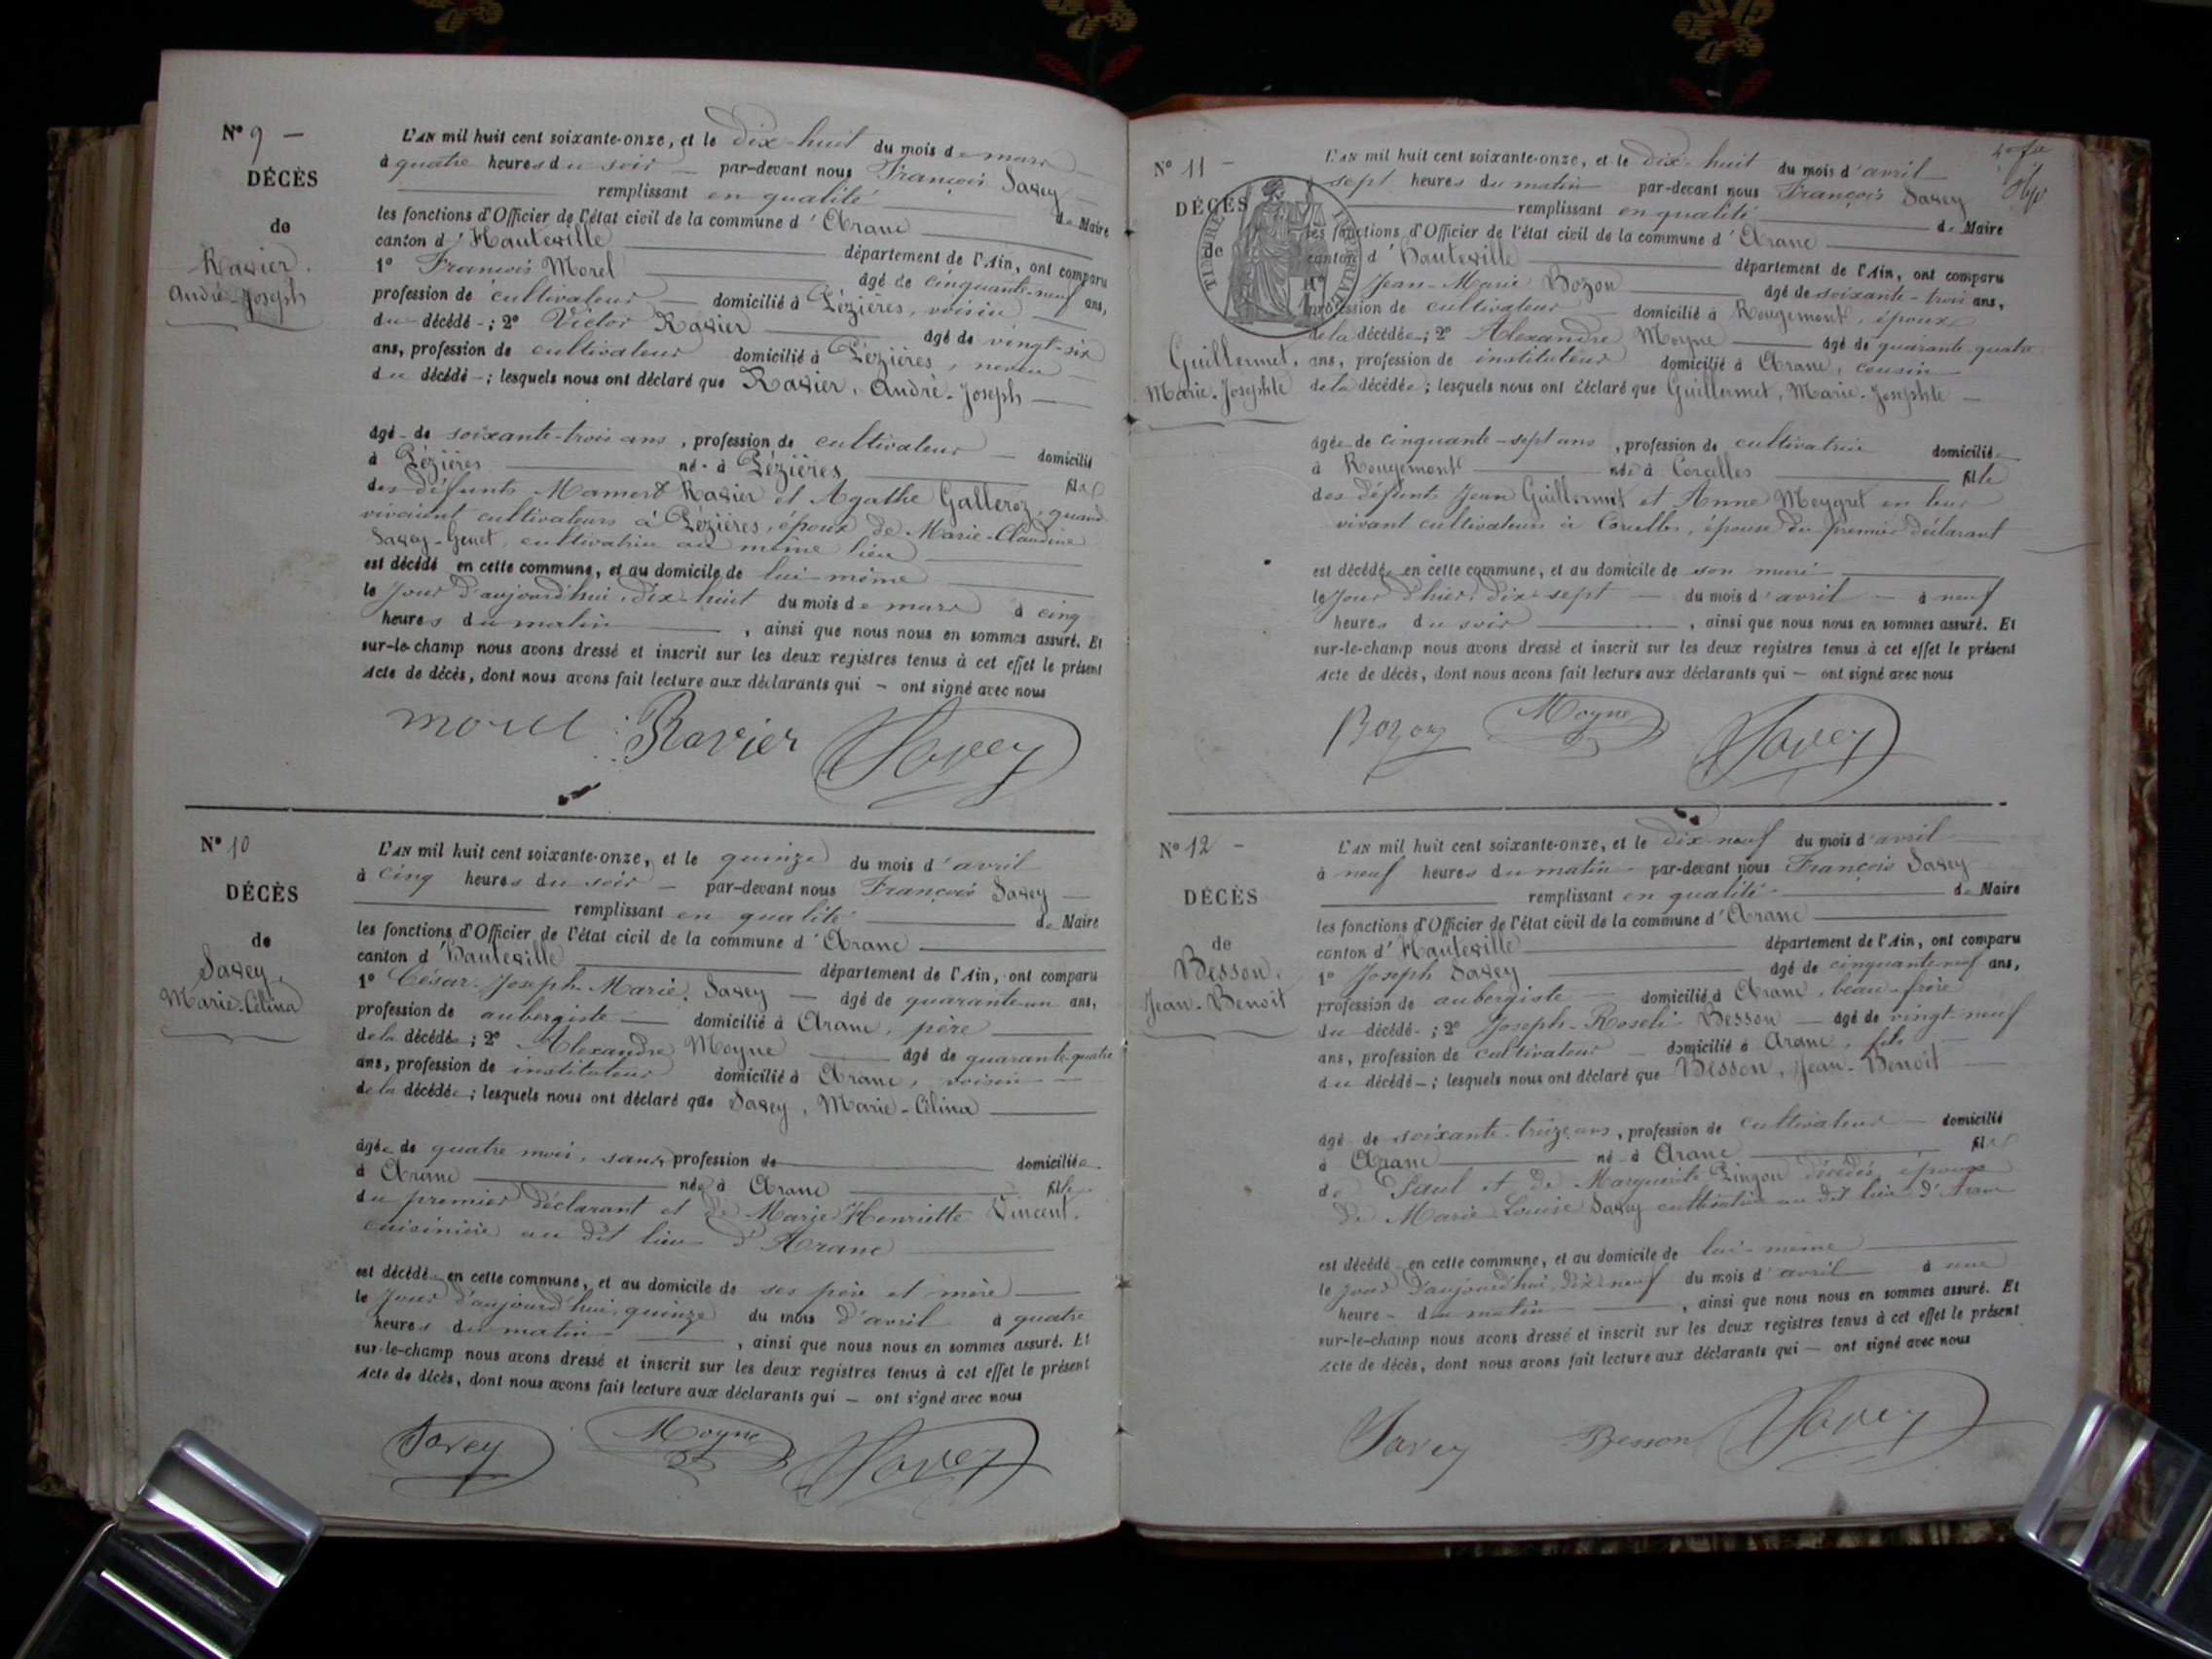 N° 9 —
DÉCÈS
de
Ravier.
André-Joseph
L'AN mil huit cent soixante-onze, et le dix-huit du mois de mars
à quatre heures du soir — par-devant nous François Savey
remplissant en qualité de Maire
les fonctions d'Officier de l'état civil de la commune d'Aranc
canton d'Hauteville département de l'Ain, ont comparu
1° François Morel âgé de cinquante-neuf ans,
profession de cultivateur domicilié à Pézières, voisin
du décédé ; 2° Victor Ravier âgé de vingt-six
ans, profession de cultivateur domicilié à Pézières, neveu
du décédé ; lesquels nous ont déclaré que Ravier, André-Joseph —
âgé de soixante-trois ans, profession de cultivateur — domicilié
à Pézières né à Pézières fils
des défunts Mamert Ravier et Agathe Galleroz, quand
vivaient cultivateurs à Pézières, époux de Marie-Claudine
Savey-Genet, cultivatrice au même lieu
est décédé en cette commune, et au domicile de lui-même
le jour d'aujourd'hui, dix-huit du mois de mars à cinq
heures du matin, ainsi que nous nous en sommes assuré. Et
sur-le-champ nous avons dressé et inscrit sur les deux registres tenus à cet effet le présent
Acte de décès, dont nous avons fait lecture aux déclarants qui — ont signé avec nous
morel Ravier Savey
N° 10
DÉCÈS
de
Savey,
Marie-Célina
L'AN mil huit cent soixante-onze, et le quinze du mois d'avril
à cinq heures du soir — par-devant nous François Savey —
remplissant en qualité de Maire
les fonctions d'Officier de l'état civil de la commune d'Aranc
canton d'Hauteville département de l'Ain, ont comparu
1° César-Joseph-Marie Savey — âgé de quarante-un ans,
profession de aubergiste — domicilié à Aranc, père
de la décédée ; 2° Alexandre Moyne âgé de quarante-quatre
ans, profession de instituteur domicilié à Aranc, voisin
de la décédée ; lesquels nous ont déclaré que Savey, Marie-Célina
âgée de quatre mois, sans profession de domiciliée
à Aranc née à Aranc fille
du premier déclarant et de Marie Henriette Vincent,
cuisinière au dit lieu d'Aranc
est décédée en cette commune, et au domicile de ses père et mère
le jour d'aujourd'hui, quinze du mois d'avril à quatre
heures du matin, ainsi que nous nous en sommes assuré. Et
sur-le-champ nous avons dressé et inscrit sur les deux registres tenus à cet effet le présent
Acte de décès, dont nous avons fait lecture aux déclarants qui — ont signé avec nous
Savey Moyne Savey
N° 11 —
DÉCÈS
de
TIMBRE IMPÉRIAL
Guillermet,
Marie-Josephte
L'AN mil huit cent soixante-onze, et le dix-huit du mois d'avril
sept heures du matin par-devant nous François Savey
remplissant en qualité de Maire
les fonctions d'Officier de l'état civil de la commune d'Aranc
canton d'Hauteville département de l'Ain, ont comparu
1° Jean-Marie Bozon âgé de soixante-trois ans,
profession de cultivateur domicilié à Rougemont, époux
de la décédée ; 2° Alexandre Moyne âgé de quarante-quatre
ans, profession de instituteur domicilié à Aranc, cousin
de la décédée ; lesquels nous ont déclaré que Guillermet, Marie-Josephte —
âgée de cinquante-sept ans, profession de cultivatrice domiciliée
à Rougemont née à Corcelles fille
des défunts Jean Guillermet et Anne Meygret en leur
vivant cultivateurs à Corcelles, épouse du premier déclarant
est décédée en cette commune, et au domicile de son mari
le jour d'hier, dix-sept — du mois d'avril — à neuf
heures du soir, ainsi que nous nous en sommes assuré. Et
sur-le-champ nous avons dressé et inscrit sur les deux registres tenus à cet effet le présent
Acte de décès, dont nous avons fait lecture aux déclarants qui — ont signé avec nous
Bozon Moyne Savey
N° 12 —
DÉCÈS
de
Besson,
Jean-Benoit
L'AN mil huit cent soixante-onze, et le dix-neuf du mois d'avril
à neuf heures du matin par-devant nous François Savey
remplissant en qualité de Maire
les fonctions d'Officier de l'état civil de la commune d'Aranc
canton d'Hauteville département de l'Ain, ont comparu
1° Joseph Savey âgé de cinquante-neuf ans,
profession de aubergiste — domicilié à Aranc, beau-frère
du décédé ; 2° Joseph-Roseli Besson — âgé de vingt-neuf
ans, profession de cultivateur — domicilié à Aranc, fils
du décédé ; lesquels nous ont déclaré que Besson, Jean-Benoit
âgé de soixante-treize ans, profession de cultivateur — domicilié
à Aranc né à Aranc fils
de Paul et de Marguerite Pingon décédés, époux
de Marie-Louise Savey cultivatrice au dit lieu d'Aranc
est décédé en cette commune, et au domicile de lui-même
le jour d'aujourd'hui, dix-neuf du mois d'avril à une
heure du matin, ainsi que nous nous en sommes assuré. Et
sur-le-champ nous avons dressé et inscrit sur les deux registres tenus à cet effet le présent
Acte de décès, dont nous avons fait lecture aux déclarants qui — ont signé avec nous
Savey Besson Savey